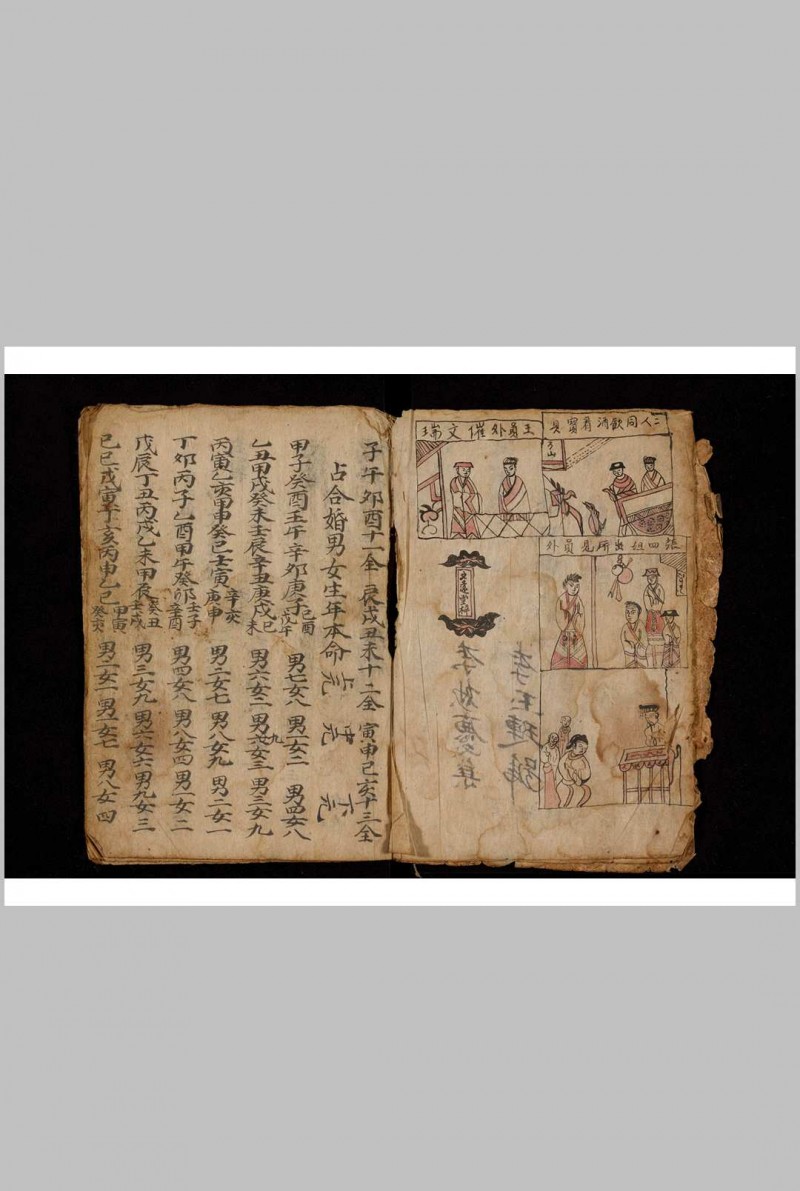 二人同飲酒看寳貝
王員外催文瑞
張四姐出所見員外
子午卯酉十一全 辰戌丑未十二全 寅申巳亥十三全
占合婚男女生年本命 上元 中元 下元
甲子癸酉壬午辛卯庚子己酉戊午 男七女八 男一女二 男四女八
乙丑甲戌癸未壬辰辛丑庚戌己未 男六女二 男九女三 男三女九
丙寅乙亥甲申癸巳壬寅辛亥庚申 男二女七 男八女九 男二女一
丁卯丙子乙酉甲午癸卯壬子辛酉 男四女八 男八女四 男一女二
戊辰丁丑丙戌乙未甲辰癸丑壬戌 男三女九 男六女六 男九女三
己巳戊寅丁亥丙申乙巳甲寅癸亥 男二女一 男五女七 男八女四